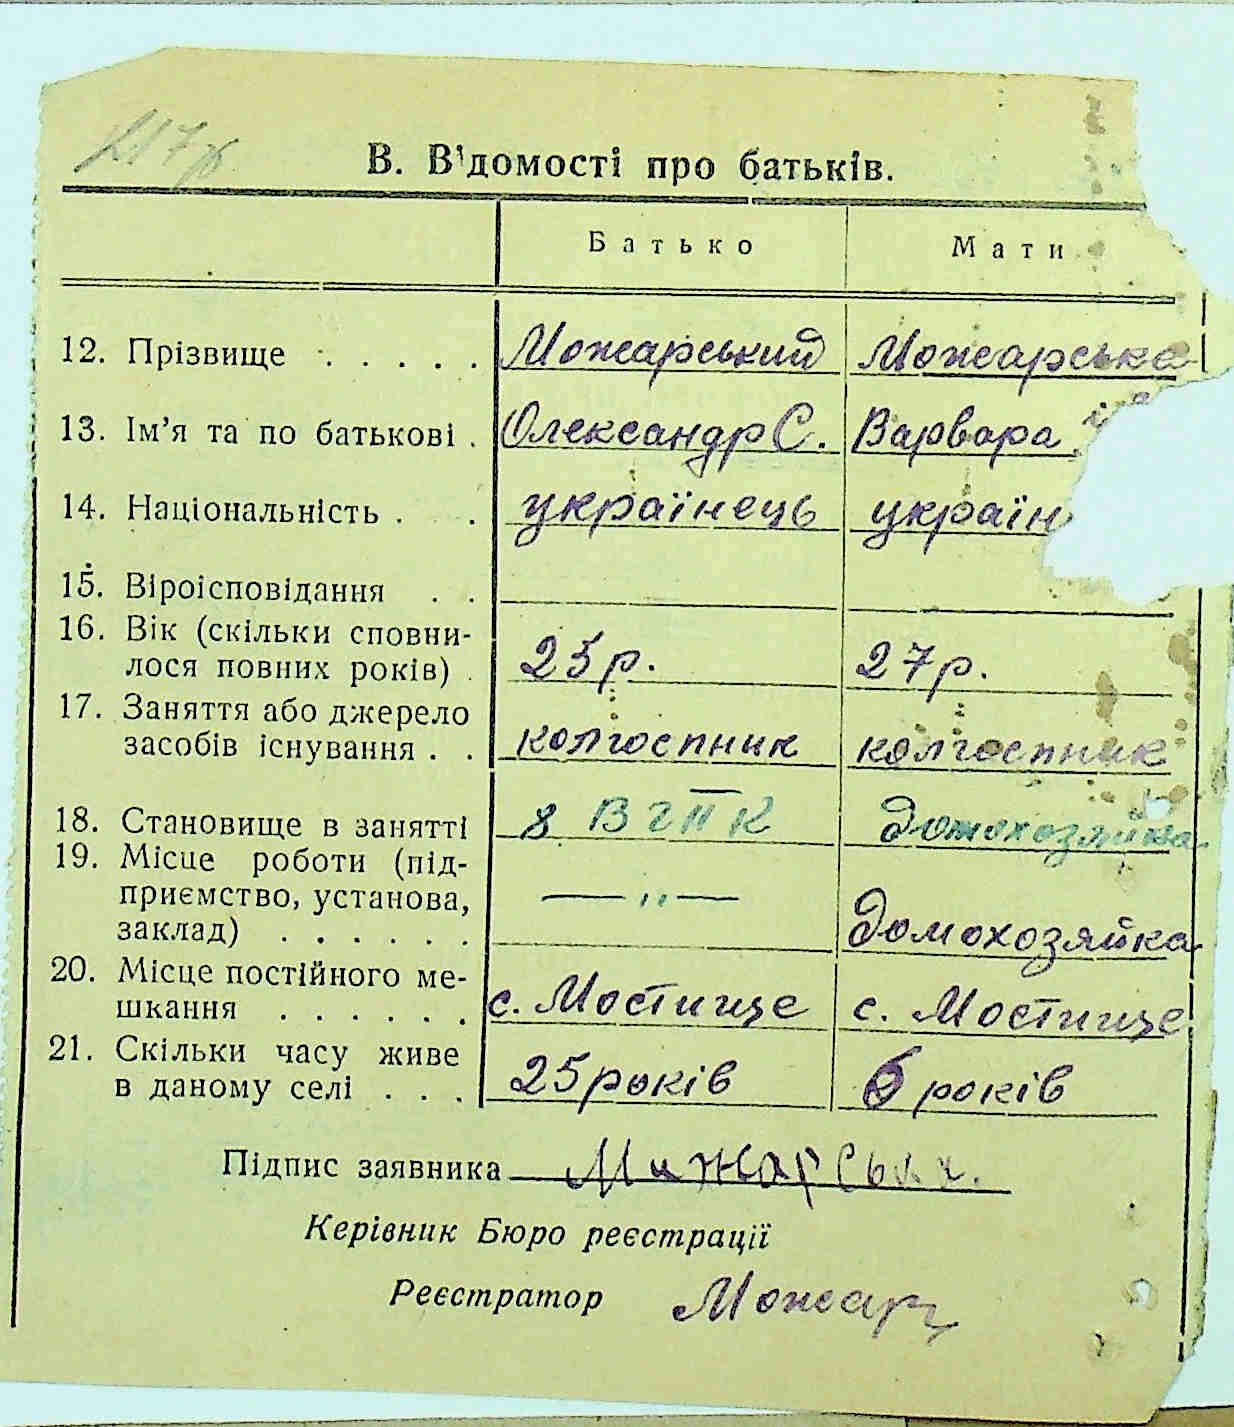 В. Відомості про батьків.
Батько Мати
12. Прізвище . . . . . Можарський Можарська
13. Ім’я та по батькові . Олександр С. Варвара
14. Національність . . українець україн
15. Віроісповідання . .
16. Вік (скільки сповни-
лося повних років) . 25 р. 27 р.
17. Заняття або джерело
засобів існування . . колгоспник колгоспник
18. Становище в занятті домохозяйка
19. Місце роботи (під-
приємство, установа, — „ —
заклад) . . . . . . домохозяйка
20. Місце постійного ме-
шкання . . . . . . с. Мостище с. Мостище
21. Скільки часу живе
в даному селі . . . 25 років 6 років
Підпис заявника
Керівник Бюро реєстрації
Реєстратор Можар